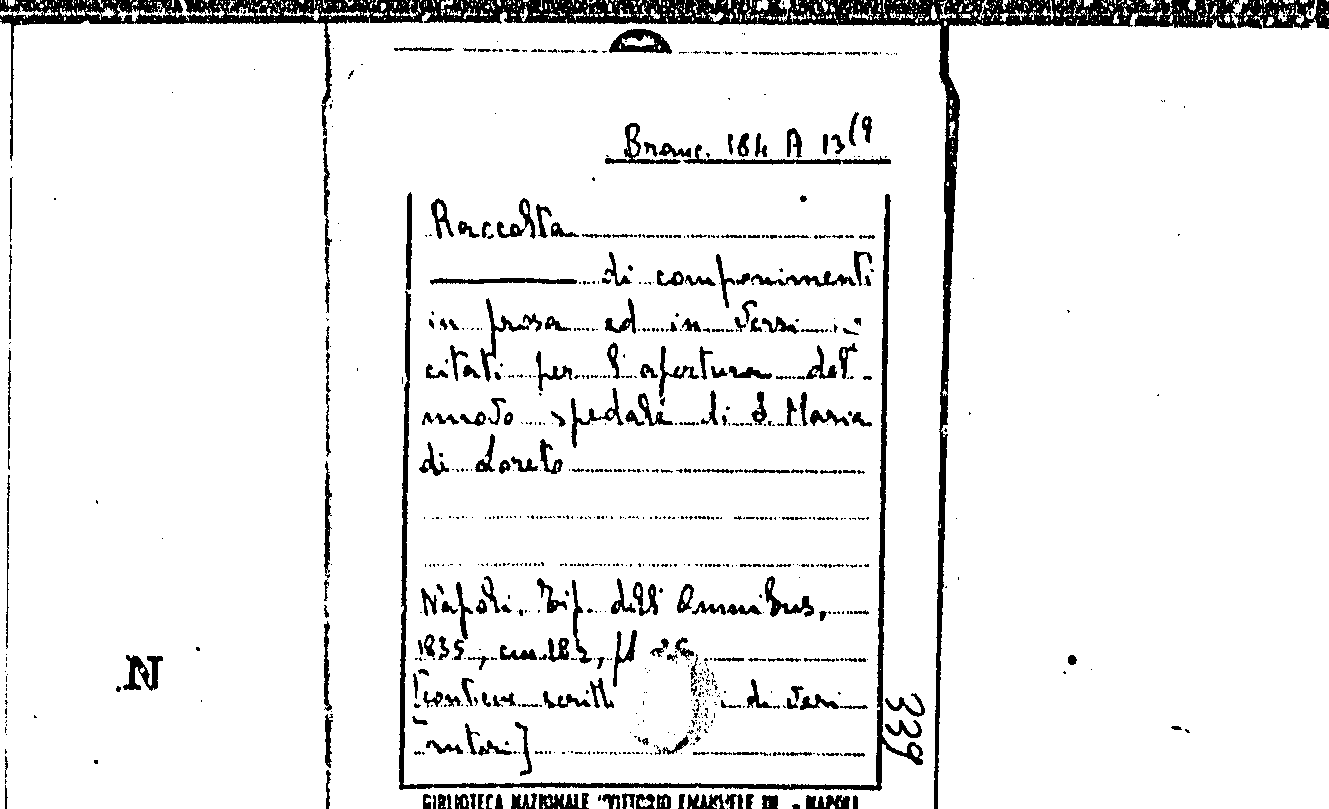 Branc. 184 A 13(9
Raccolta
di componimenti
in prosa ed in versi
citati per l'apertura del
nuovo spedale di S. Maria
di Loreto
Napoli. Tip. dell'Omnibus,
1835, cm.
[contiene scritti di vari
autori]
339
N.
BIBLIOTECA NAZIONALE "VITTORIO EMANUELE III. - NAPOLI